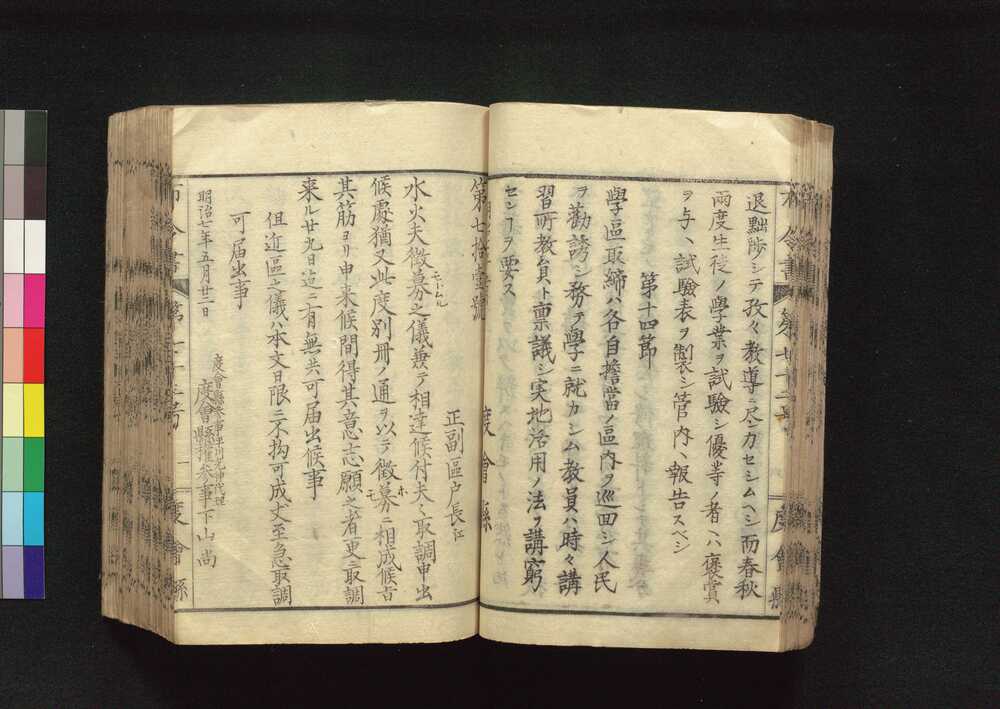 退黜陟シテ孜々教導ニ尽力セシムヘシ而春秋
両度生徒ノ學業ヲ試驗シ優等ノ者ハ褒賞
ヲ与ヘ試驗表ヲ製シ管内ヘ報告スベシ
第十四節
學區取締ハ各自擔當ノ區内ヲ巡回シ人民
ヲ勸誘シ務テ學ニ就カシム教員ハ時々講
習所教員ト稟議シ実地活用ノ法ヲ講窮
センヿヲ要ス
第七拾壹號
度會縣
正副區戸長江
水火夫徴募之儀兼テ相達候付夫々取調申出
候處猶又此度別冊ノ通ヲ以テ徴募ニ相成候古
其筋ヨリ申来候間得其意志願之者更ニ取調
来ル廿九日迄ニ有無共可届出候事
但近區之儀ハ本文日限ニ不拘可成丈至急取調
可届出事
明治七年五月廿二日
度會縣權参事下山尚
度會縣